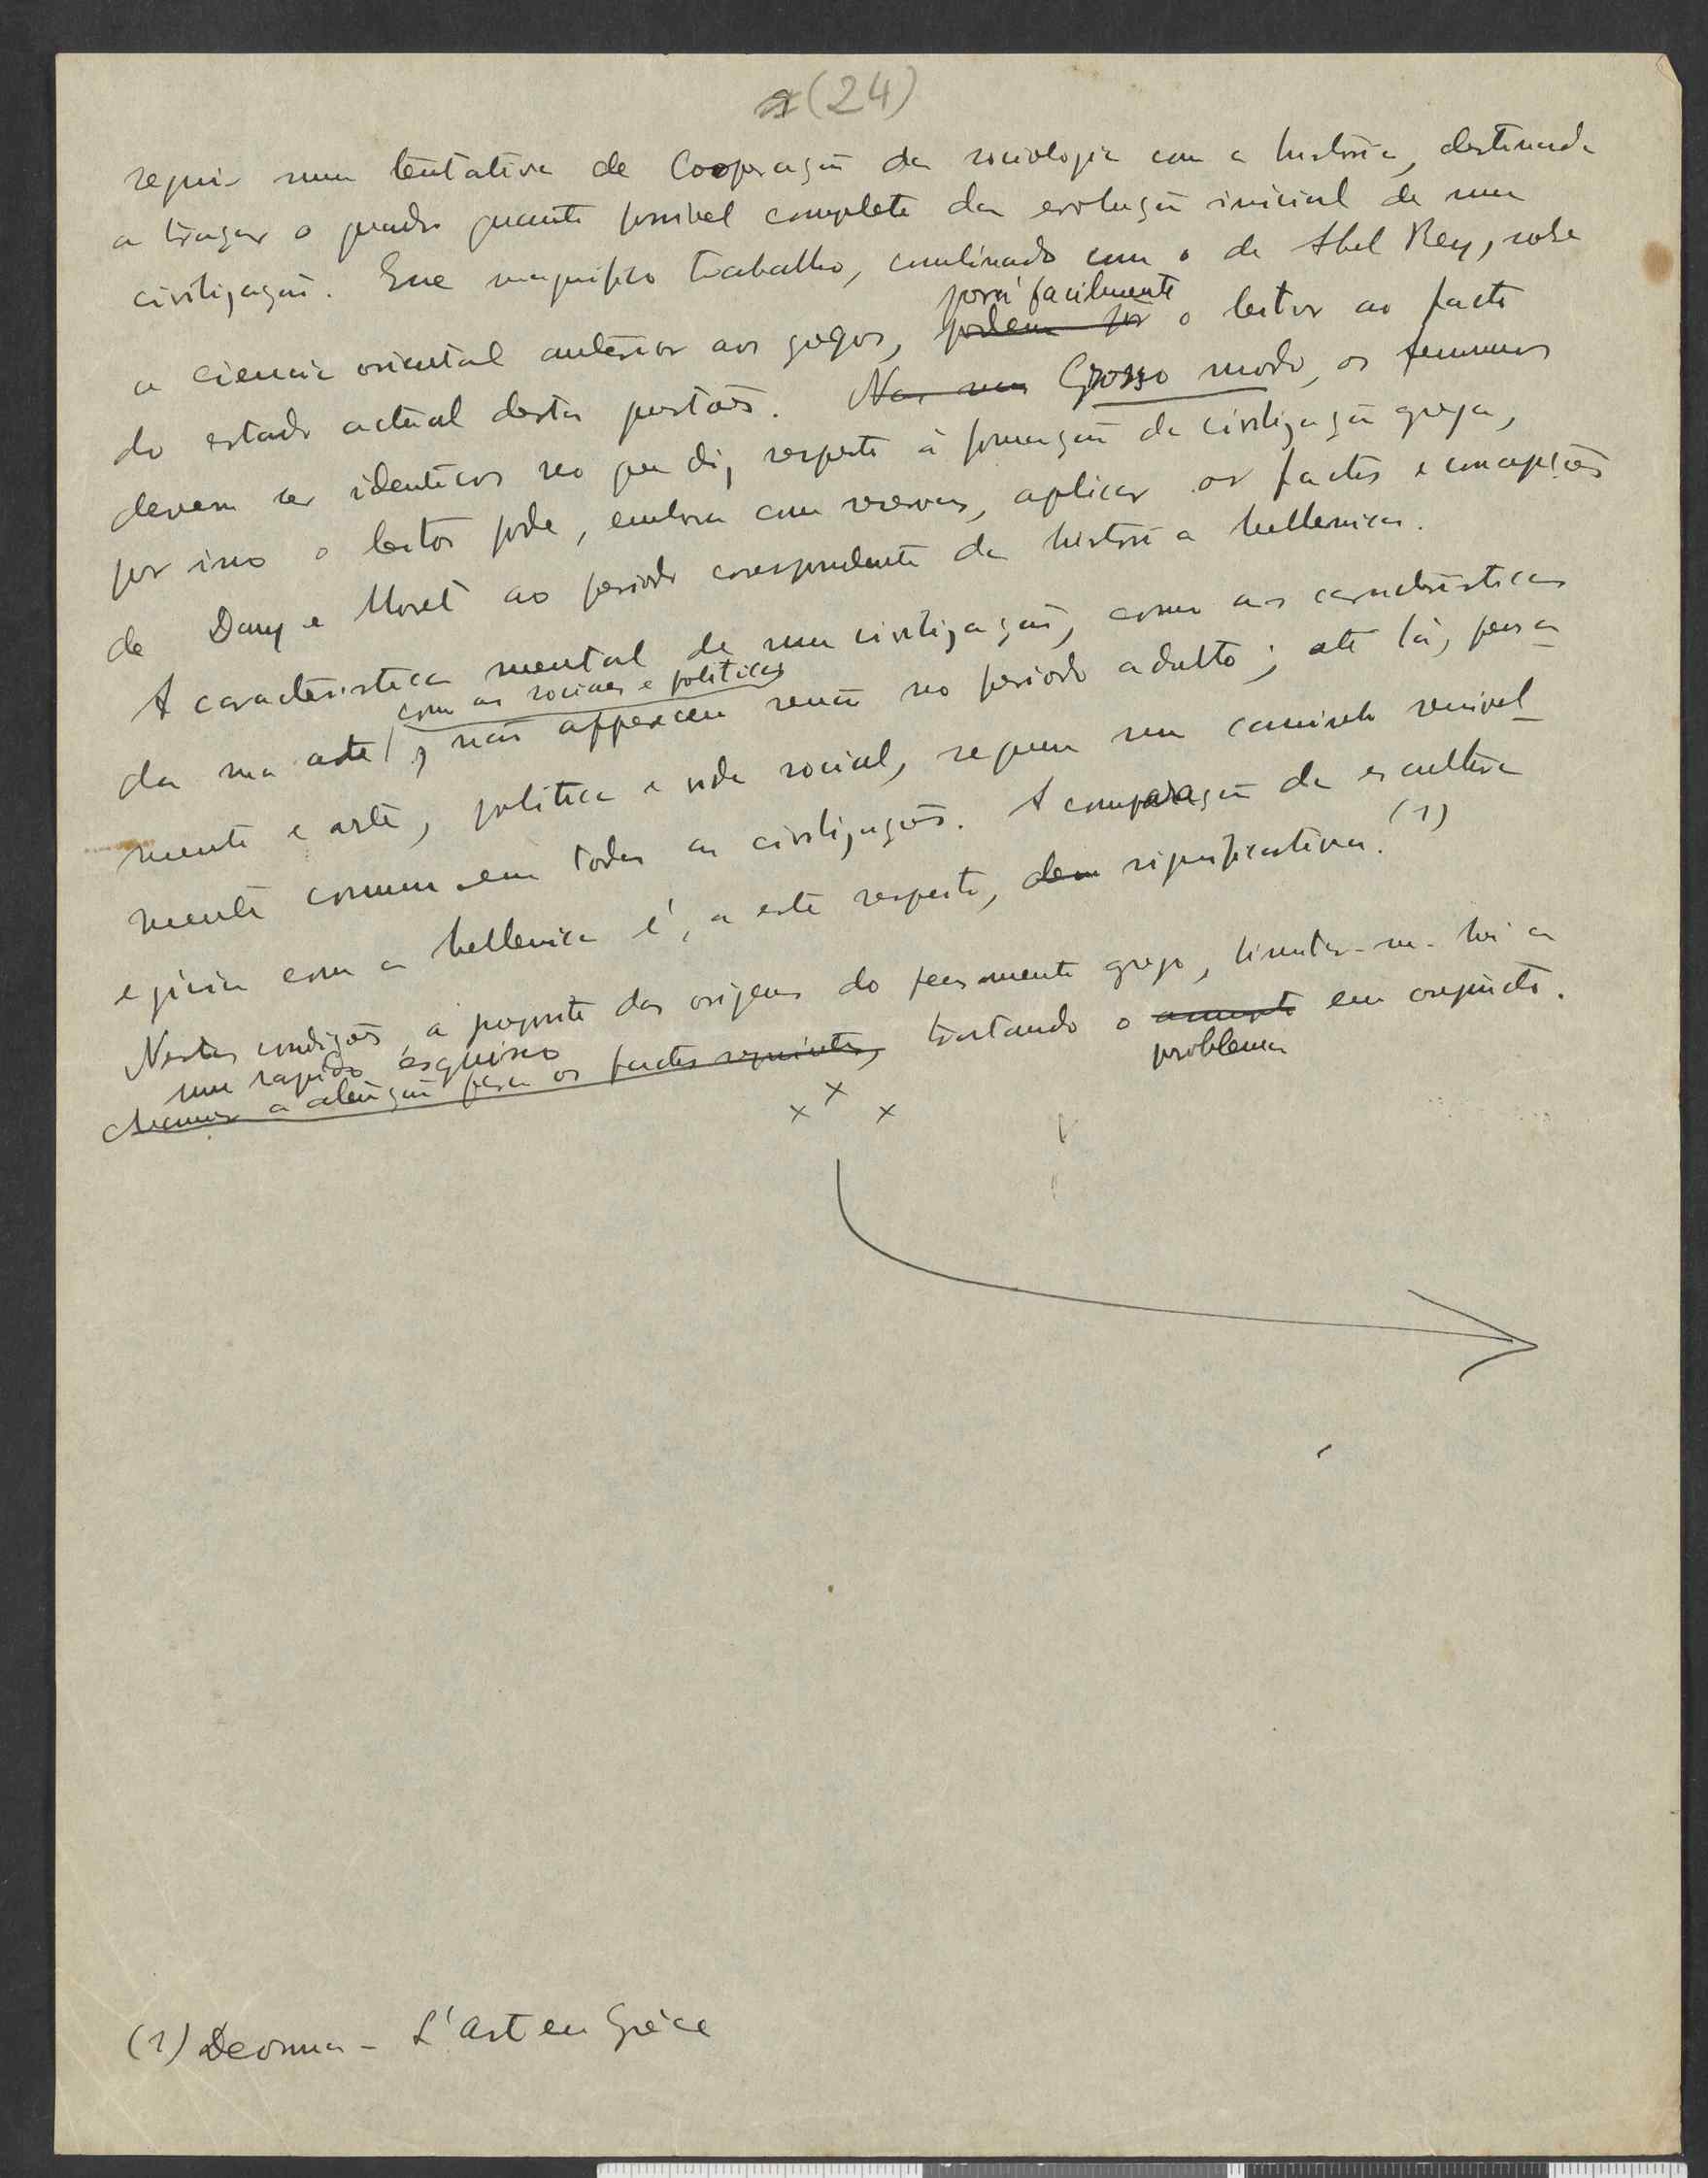 (24)
seguir uma tentativa de Cooperação da sociologia com a historia, destinada
a traçar o quadro quanto possivel completo da evolução inicial de uma
civilização. Esse magnifico trabalho, combinado com o de Abel Rey, sobre
porá facilmente
a ciencia oriental anterior aos gregos, podem pôr o leitor ao facto
do estado actual destas questões. Nas suas Grosso modo, os fenomenos
devem ser identicos no que diz respeito á formação da civilização grega,
por isso o leitor pode, embora com reservas, aplicar os factos e concepções
de Davy e Moret ao periodo correspondente da historia hellenica.
A caracteristica mental de uma civilização, como as caracteristicas
com as sociaes e politicas
da sua arte, não apparecem senão no periodo adulto; até lá, pensa-
mento e arte, politica e vida social, seguem um caminho sensivel-
mente commum em todas as civilizações. A comparação da escultura
egipcia com a hellenica é, a este respeito, bem significativa. (1)
Nestas condições, a proposito das origens do pensamento grego, limitar-me-hei a
um rapido esquisso
chamar a atenção para os factos seguintes, tratando o assumpto em conjuncto.
problema
x x x
(1) Deonna - L'Art en Grèce